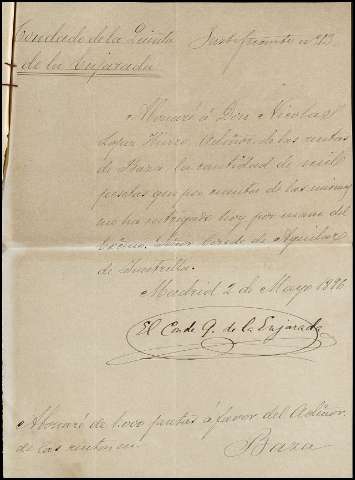 Condado de la Quinta
de la Enjarada
Justificante nº 13
Abonaré á Don Nicolas
Lopez Admor. de las rentas
de Baza, la cantidad de mil
pesetas que por cuenta de las mismas
me ha entregado hoy por mano del
Excmo. Señor Conde de Aguilar
de Inestrillas.
Madrid 2 de Mayo 1896
El Conde Q. de la Enjarada
Abonaré de 1.000 pesetas á favor del Admor.
de las rentas en
Baza